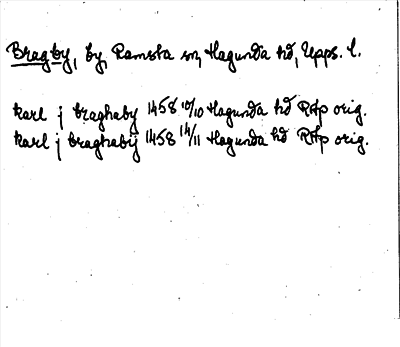 Bragby, by, Ramsta sn, Hagunda hd, Upps. l.
karl j braghaby 1458 10/10 Hagunda hd RAp orig.
karl j braghabij 1458 14/11 Hagunda hd RAp orig.